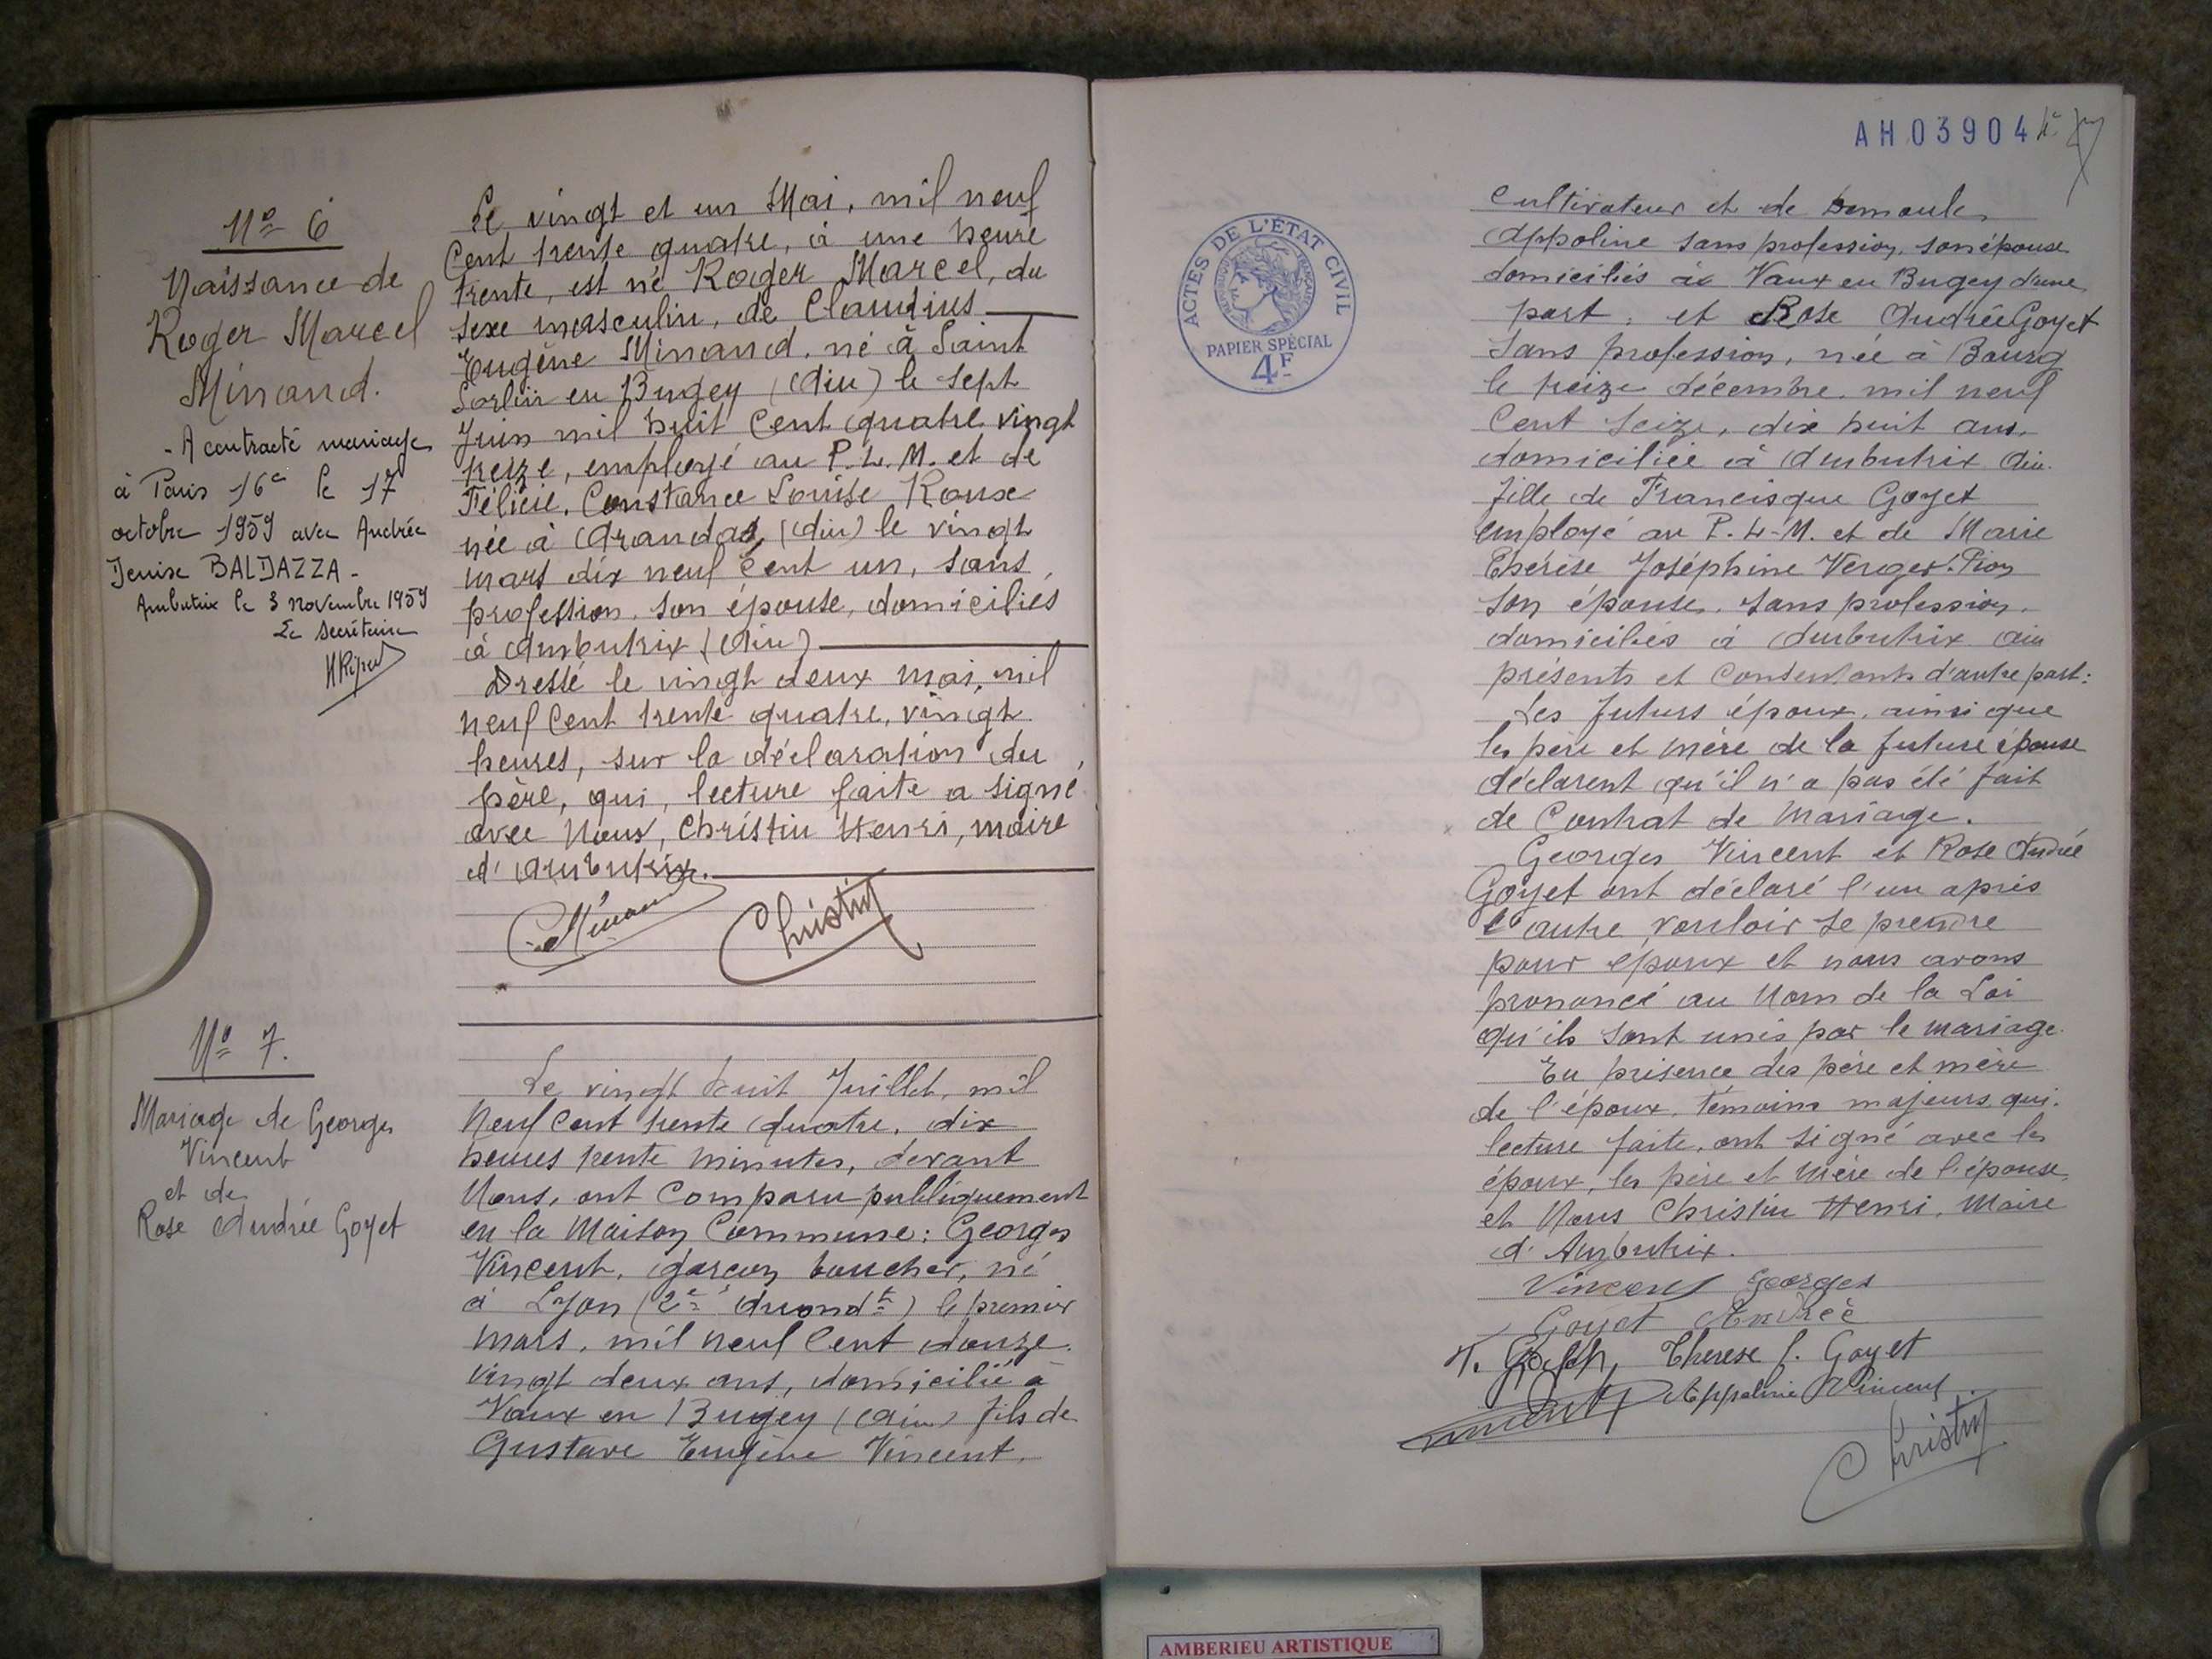 Nº 6
Naissance de
Roger Marcel
Minand.
- A contracté mariage
à Paris 16e le 17
octobre 1959 avec Andrée
Denise BALDAZZA -
Ambutrix le 3 novembre 1959
Le Secrétaire
Le vingt et un Mai, mil neuf
Cent trente quatre, à une heure
trente, est né Roger Marcel, du
sexe masculin, de Claudius
Eugène Minand, né à Saint
Sorlin en Bugey (Ain) le sept
Juin mil huit Cent quatre vingt
treize, employé au P.L.M. et de
Félicie, Constance Louise Roux
née à Arandas, (Ain) le vingt
mars dix neuf Cent un, sans
profession, son épouse, domiciliés
à Ambutrix (Ain)
Dressé le vingt deux mai, mil
neuf Cent trente quatre, vingt
heures, sur la déclaration du
père, qui, lecture faite a signé
avec Nous, Christin Henri, maire
d'Ambutrix.
C. Minand Christin
Nº 7.
Mariage de Georges
Vincent
et de
Rose Andrée Goyet
Le vingt huit Juillet, mil
Neuf Cent trente quatre, dix
heures trente minutes, devant
Nous, ont Comparu publiquement
en la Maison Commune : Georges
Vincent, garçon boucher, né
à Lyon (2e Arrondt) le premier
Mars, mil neuf Cent douze
vingt deux ans, domicilié à
Vaux en Bugey (Ain) fils de
Gustave Eugène Vincent,
AH03904
ACTES DE L'ÉTAT CIVIL
RÉPUBLIQUE FRANÇAISE
PAPIER SPÉCIAL
4F
Cultivateur et de
Appoline sans profession, son épouse
domiciliés à Vaux en Bugey d'une
part ; et Rose Andrée Goyet
Sans profession, née à Bourg
le treize décembre, mil neuf
Cent Seize, dix huit ans,
domiciliée à Ambutrix Ain.
fille de Francisque Goyet
employé au P.L-M. et de Marie
Thérèse Joséphine Verger-Pion
son épouse, sans profession,
domiciliés à Ambutrix Ain
présents et Consentants d'autre part :
Les futurs époux, ainsi que
les père et mère de la future épouse
déclarent qu'il n'a pas été fait
de Contrat de Mariage.
Georges Vincent et Rose Andrée
Goyet ont déclaré l'un après
l'autre vouloir se prendre
pour époux et nous avons
prononcé au Nom de la Loi
qu'ils sont unis par le mariage.
En présence des père et mère
de l'époux, témoins majeurs qui,
lecture faite, ont signé avec les
époux, les père et mère de l'épouse,
et Nous Christin Henri, Maire
d'Ambutrix.
Vincent Georges
Goyet Andrée
Therese J. Goyet
Appoline Vincent
Christin
AMBERIEU ARTISTIQUE